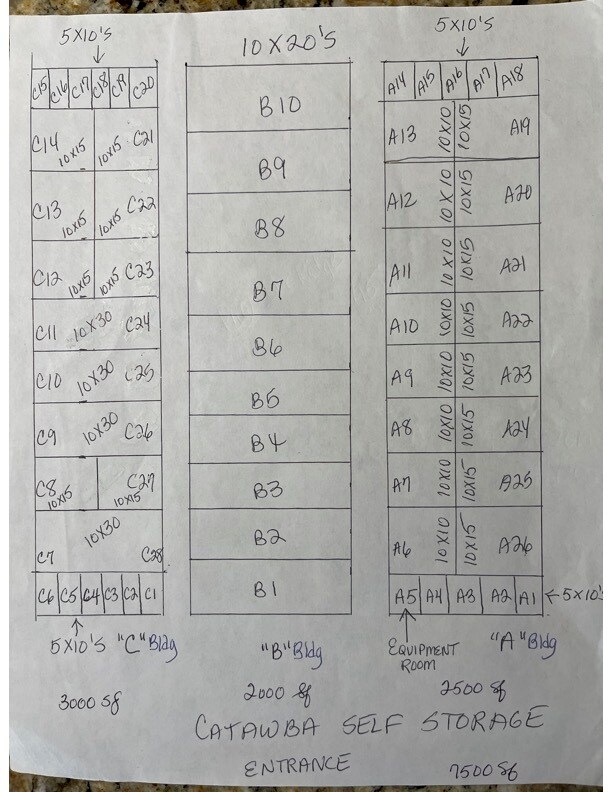 5X10'S
10X20'S
5X10'S
C15 C16 C17 C18 C19 C20
C14 10X15 10X15 C21
C13 10X15 10X15 C22
C12 10X15 10X15 C23
C11 10X30 C24
C10 10X30 C25
C9 10X30 C26
C8 10X15 10X15 C27
C7 10X30 C28
C6 C5 C4 C3 C2 C1
5X10'S "C" Bldg
3000 Sf
B10
B9
B8
B7
B6
B5
B4
B3
B2
B1
"B" Bldg
2000 Sf
A14 A15 A16 A17 A18
A13 10X10 10X15 A19
A12 10X10 10X15 A20
A11 10X10 10X15 A21
A10 10X10 10X15 A22
A9 10X10 10X15 A23
A8 10X10 10X15 A24
A7 10X10 10X15 A25
A6 10X10 10X15 A26
A5 A4 A3 A2 A1 5X10'S
EQUIPMENT
ROOM
"A" Bldg
2500 Sf
CATAWBA SELF STORAGE
ENTRANCE
7500 Sf